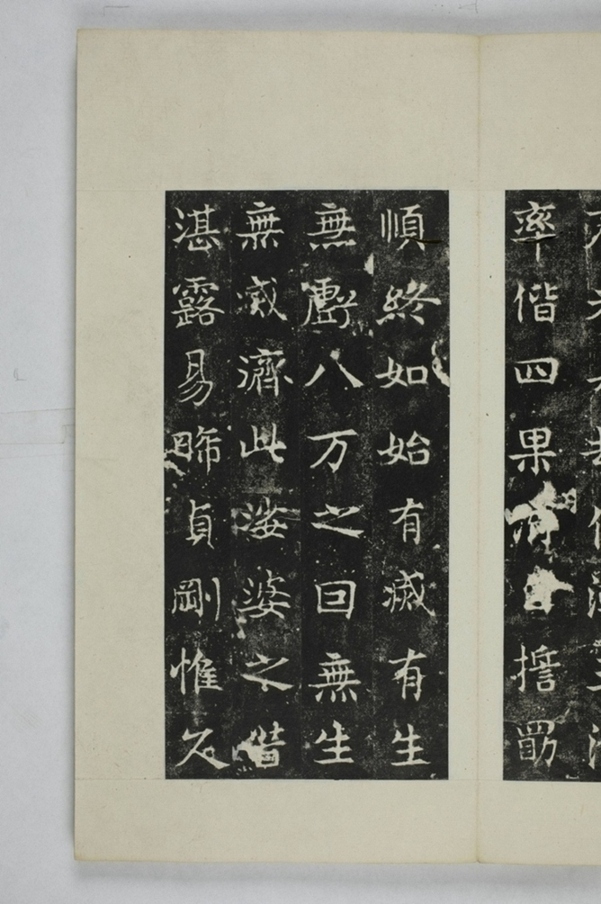 率偕四果
擔罰
順終如始有滅有生
無虧八万之回無生
無滅濟此娑婆之
湛露易晞貞剛惟久